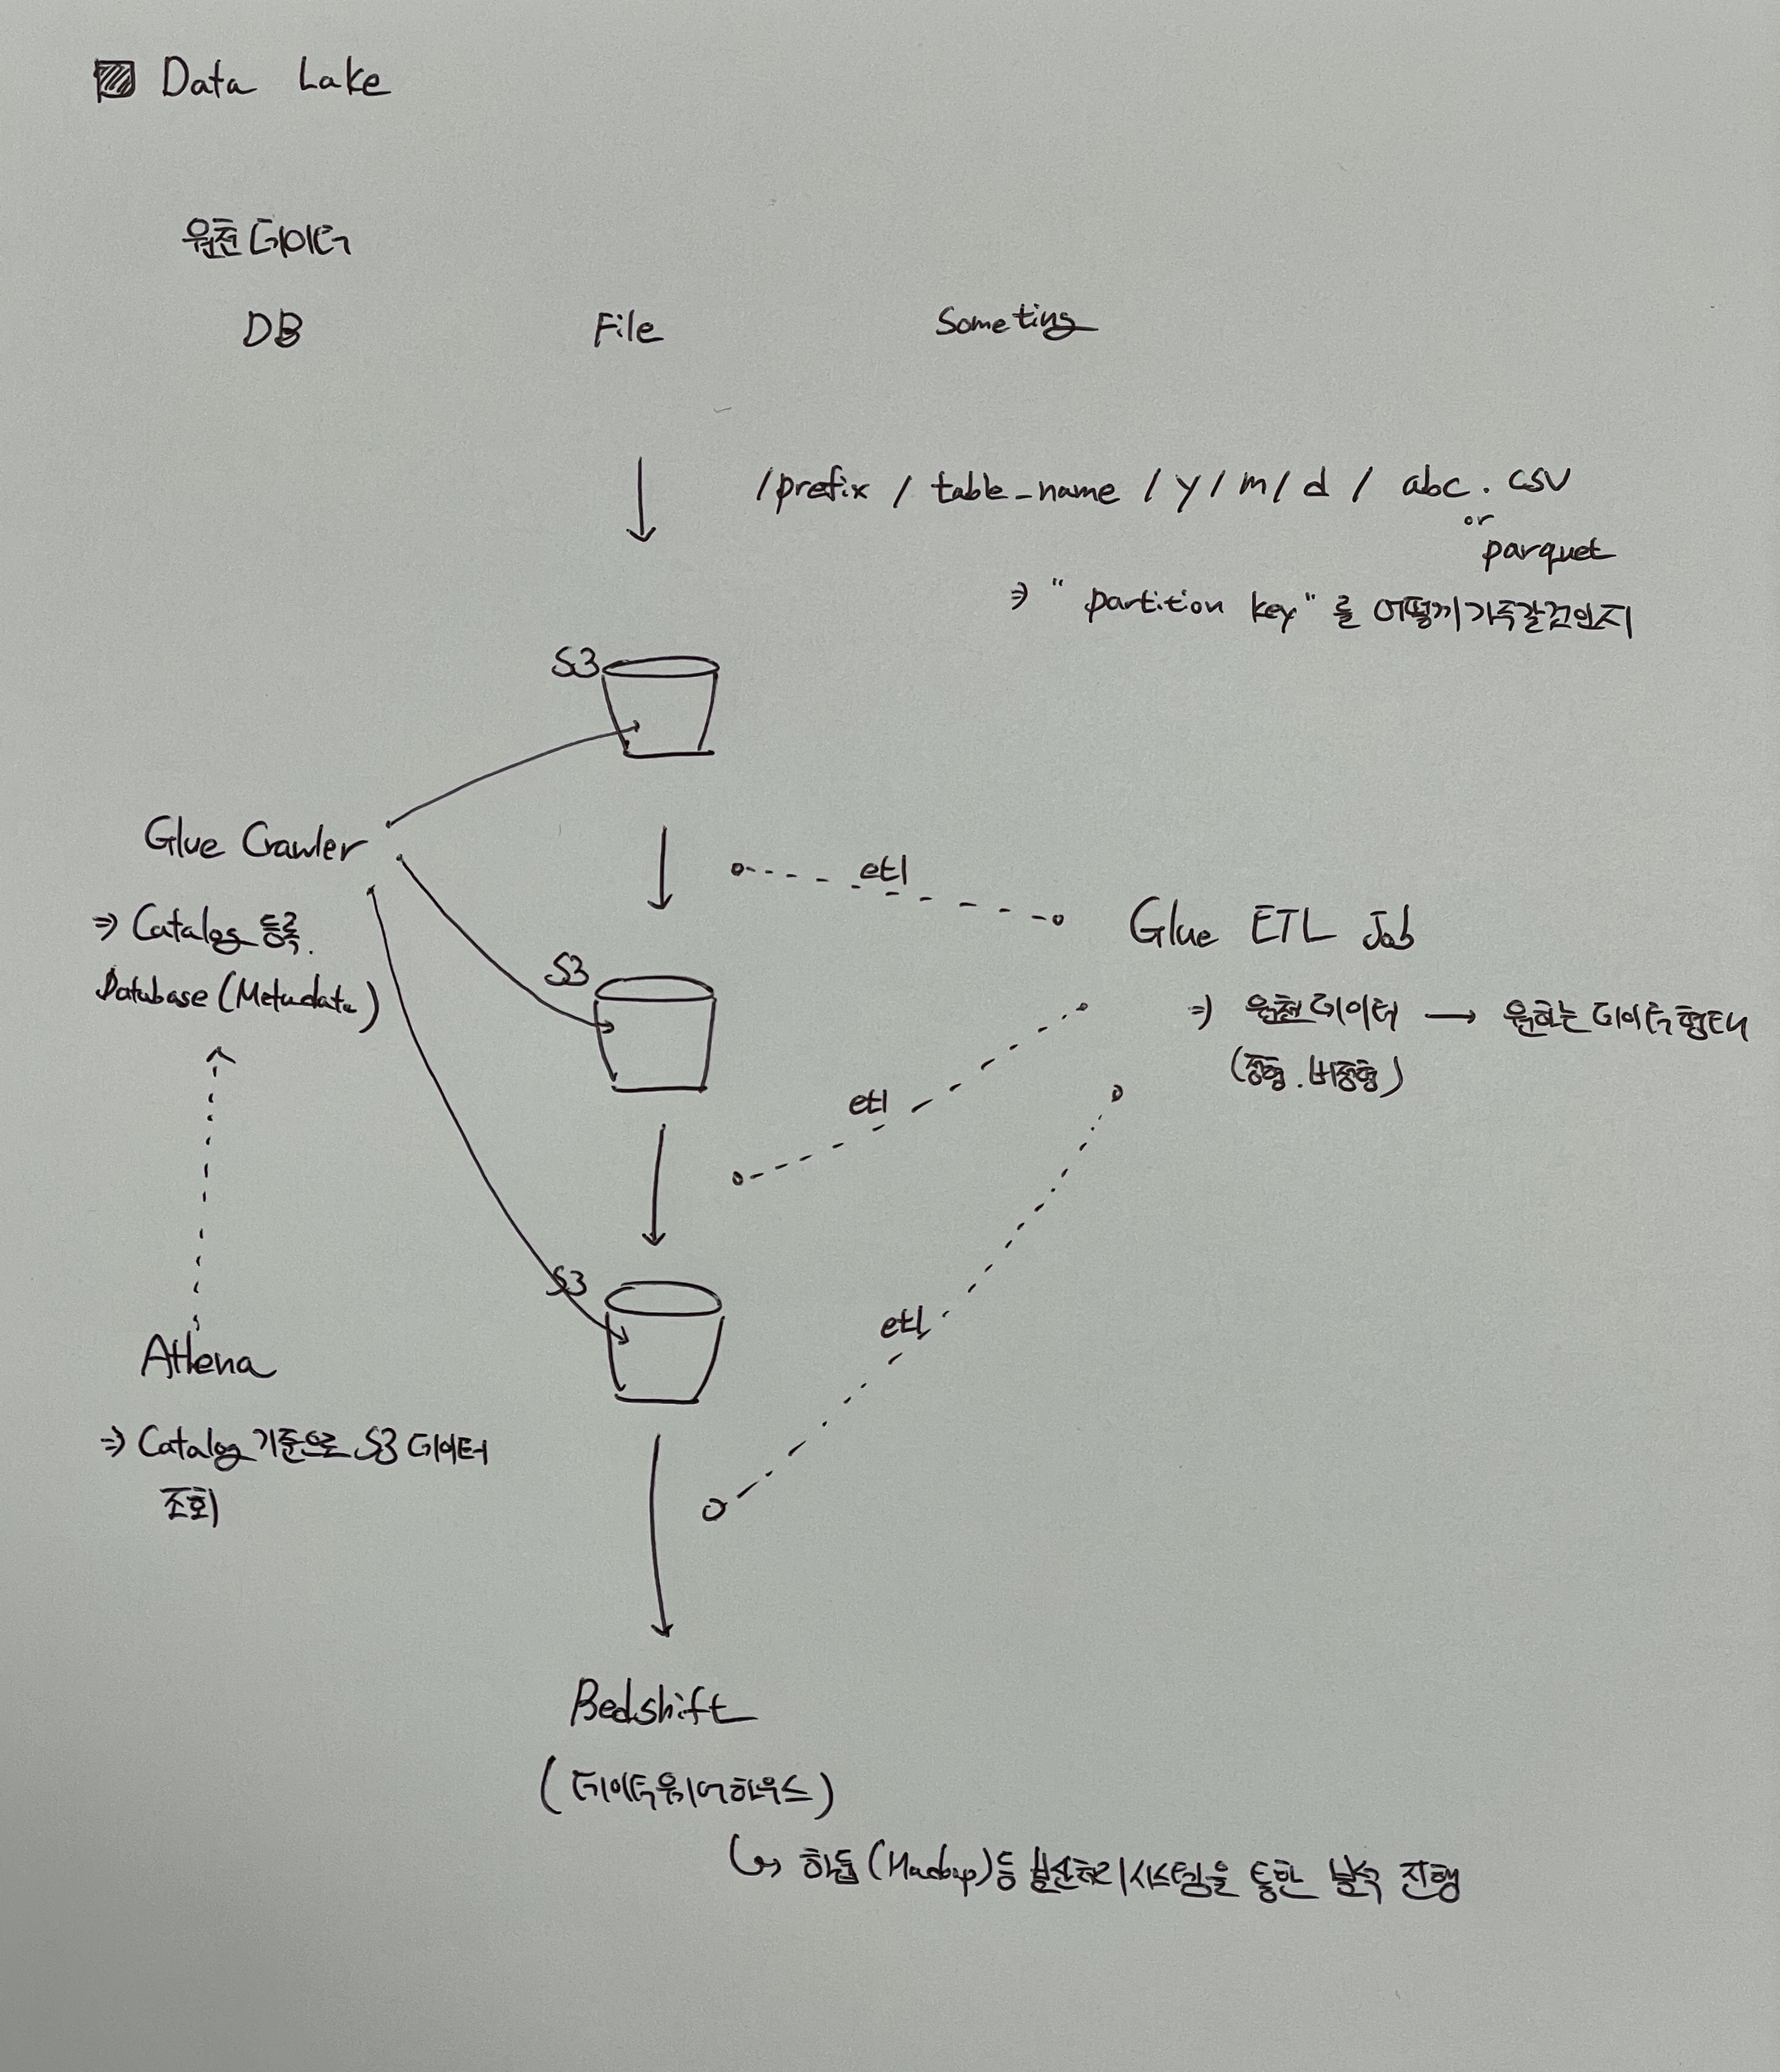 Data Lake
원천 데이터
DB
File
Someting
/prefix / table_name / y / m / d / abc . csv
or
parquet
⇒ "partition key" 를 어떻게 가족갈건인지
S3
Glue Crawler
etl
⇒ Catalog 등록.
Database (Metadata)
Glue ETL Job
S3
⇒ 원천 데이터 → 원하는 데이터 형태
(정형. 비정형)
etl
S3
etl
Athena
⇒ Catalog 기준으로 S3 데이터
조회
Redshift
(데이터웨어하우스)
↳ 하둡 (Hadoop) 등 분산처리 시스템을 통한 분석 진행